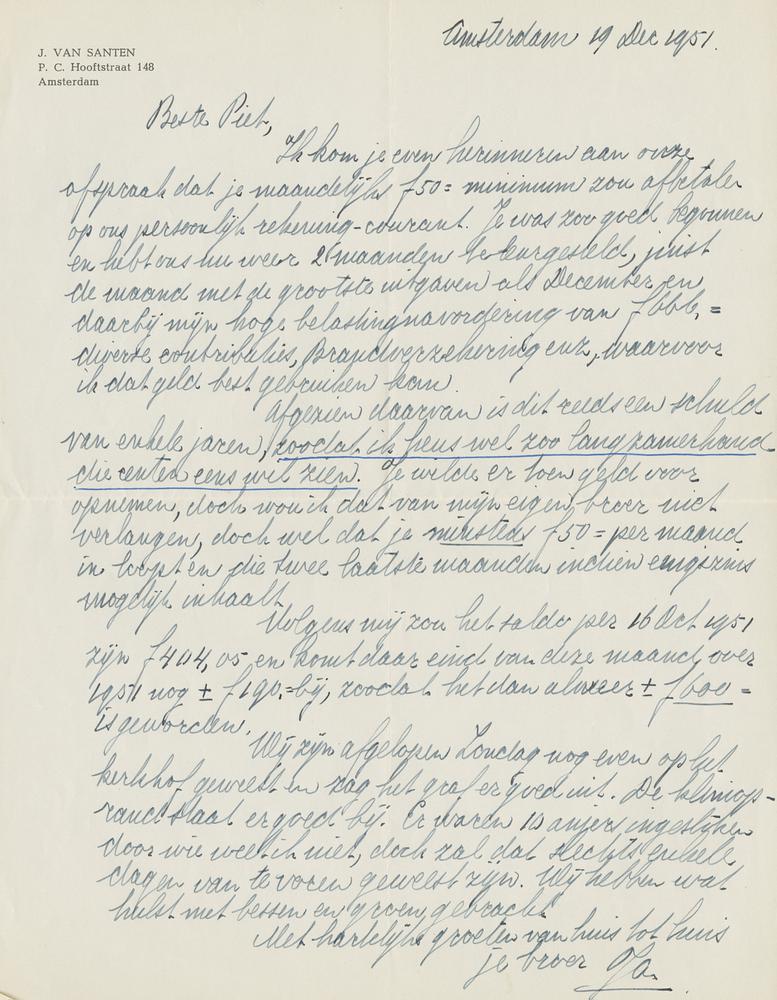 J. VAN SANTEN
P. C. Hooftstraat 148
Amsterdam
Amsterdam 19 Dec 1951.
Beste Piet,
Ik kom je even herinneren aan onze
afspraak dat je maandelijks f50= minimum zou afbetalen
op ons persoonlijk rekening-courant. Je was zoo goed begonnen
en hebt ons nu weer 2 maanden te leurgesteld, juist
de maand met de grootste uitgaven als December en
daarbij mijn hoge belastingnavordering van f666,=
diverse contributies, Brandverzekering enz, waarvoor
ik dat geld best gebruiken kan.
Afgezien daarvan is dit reeds een schuld
van enkele jaren, zoodat ik heus wel zoo langzamerhand
die centen eens wil zien. Je wilde er toen geld voor
opnemen, doch wou ik dat van mijn eigen broer niet
verlangen, doch wel dat je minstens f50= per maand
in loopt en die twee laatste maanden indien enigszins
mogelijk inhaalt.
Volgens mij zou het saldo per 16 Oct 1951
zijn f404,05 en komt daar eind van deze maand over
1951 nog ± f190.= bij, zoodat het dan alweer ± f600=
is geworden.
Wij zijn afgelopen Zondag nog even op het
kerkhof geweest en zag het graf er goed uit. De klimop-
rand staat er goed bij. Er waren 10 anjers ingestoken
door wie weet ik niet, doch zal dat slechts enkele
dagen van te voren geweest zijn. Wij hebben wat
hulst met bessen en groen gebracht.
Met hartelijke groeten van huis tot huis
je broer Ja.